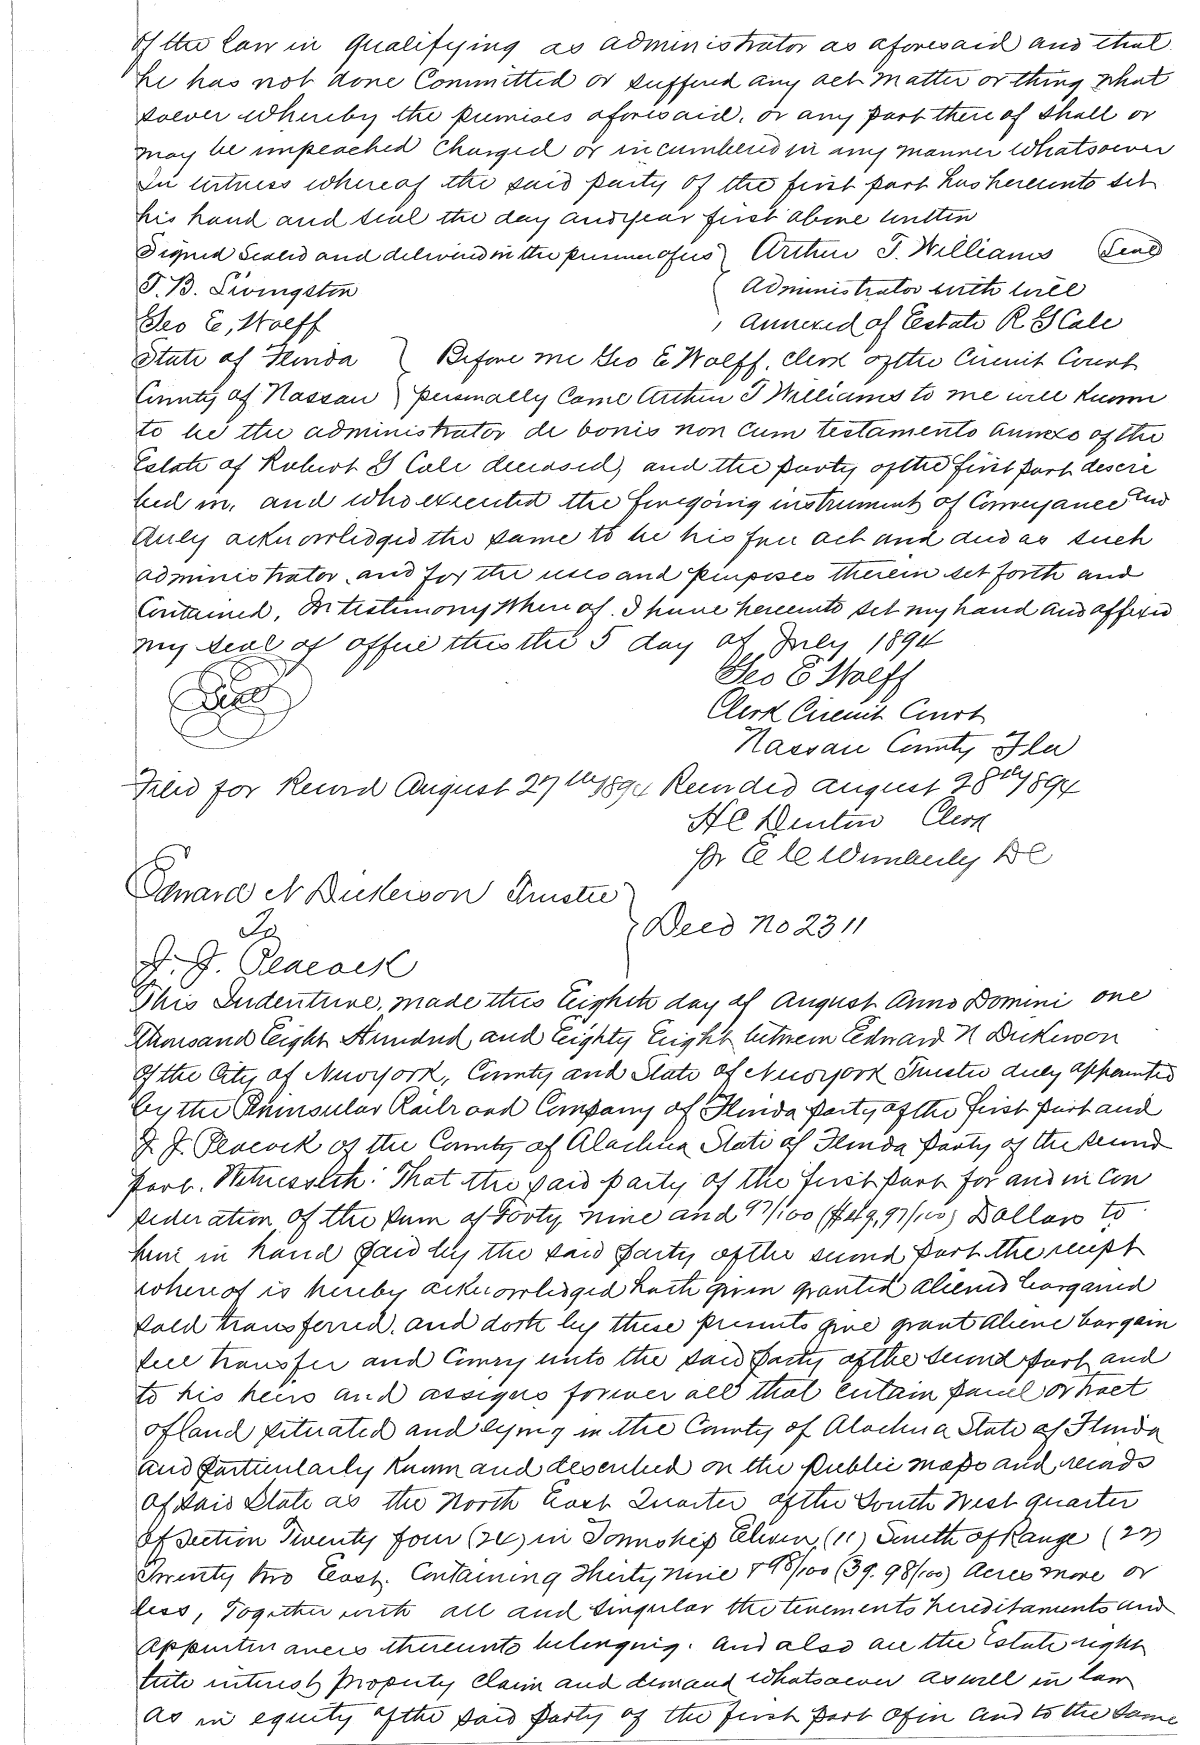 of the law in qualifying as administrator as aforesaid and that
he has not done Committed or suffered any act matter or thing what
soever whereby the premises aforesaid, or any part there of shall or
may be impeached Charged or incumbered in any manner whatsoever
In witness whereof the said party of the first part has hereunto set
his hand and seal the day and year first above written
Signed Sealed and delivered in the presence of us } Arthur T. Williams (Seal)
T. B. Livingston { Administrator with will
Geo E, Wolff , annexed of Estate R G Cole
State of Florida } Before me Geo E Wolff, Clerk of the Circuit Court
County of Nassau } personally Came Arthur T Williams to me well known
to be the administrator de bonis non cum testamento annexo of the
Estate of Robert G Cole deceased, and the party of the first part descri
bed in, and who executed the foregoing instrument of Conveyance and
duly acknowledged the same to be his free act and deed as such
administrator, and for the uses and purposes therein set forth and
Contained. In testimony Where of. I have hereunto set my hand and affixed
my seal of office this the 5 day of July 1894
Geo E Wolff
(Seal)
Clerk Circuit Court
Nassau County Fla
Filed for Record August 27th 1894 Recorded August 28th 1894
H C Denton Clerk
pr E C Wimberly DC
Edward N Dickerson Trustee }
To } Deed No 2311
J. J. Peacock
This Indenture, made this Eighth day of August Anno Domini one
Thousand Eight Hundred and Eighty Eight between Edward N Dickerson
of the City of New york, County and State of New york Trustee duly appointed
by the Peninsular Rail road Company of Florida party of the first part and
J. J. Peacock of the County of Alachua State of Florida party of the second
part. Witnesseth: That the said party of the first part for and in con
sideration of the sum of Forty nine and 97/100 ($49,97/100) Dollars to
him in hand paid by the said party of the second part the receipt
whereof is hereby acknowledged hath given granted aliened bargained
sold transferred, and doth by these presents give grant aliene bargain
sell transfer and Convey unto the said party of the second part and
to his heirs and assigns forever all that certain parcel or tract
of land situated and lying in the County of Alachua State of Florida
and particularly known and described on the public maps and records
of said State as the North East Quarter of the South West quarter
of Section Twenty four (24) in Township Eleven (11) South of Range (22)
Twenty two East. Containing Thirty nine & 98/100 (39.98/100) Acres more or
less, Together with all and singular the tenements hereditaments and
appurtenances thereunto belonging. and also all the Estate right
title interest property claim and demand whatsoever as well in law
as in equity of the said party of the first part of in and to the same